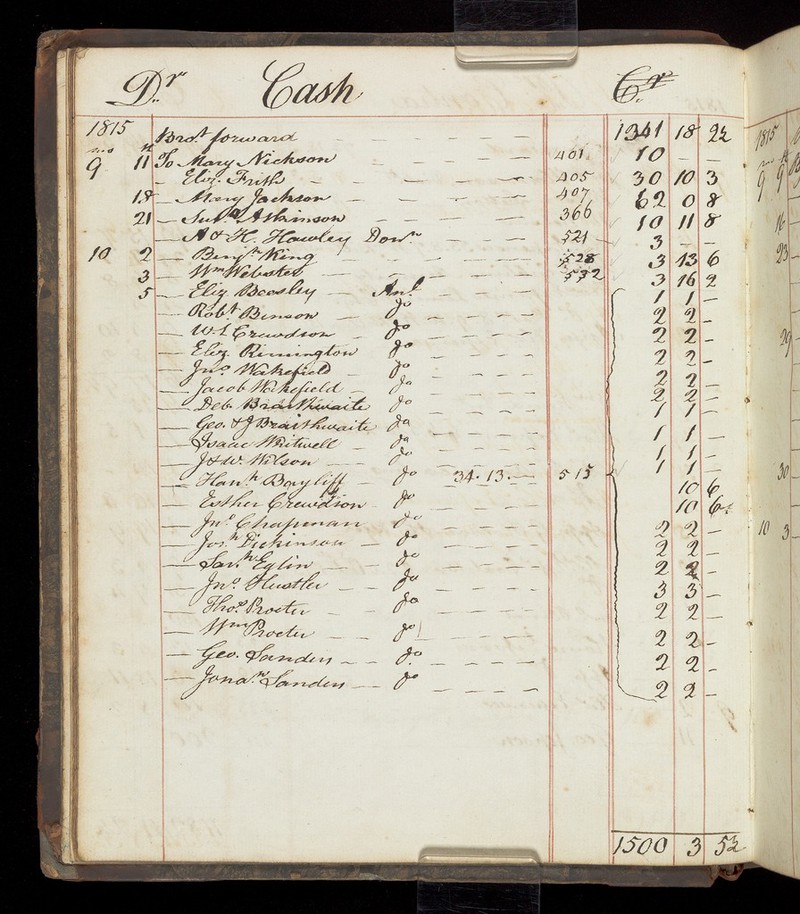 Dr. Cash Cr.
1815 Brot. forward 1341 18 2½
mo
9 11 To Mary Nickson 401 10 —
— Eliz. Frith 405 30 10 3
18 — Mary Jackson 407 62 0 8
21 — Atkinson 366 10 11 8
— A & H. Hawley Donn. 521 3 —
10 2 — Benjn. King 528 3 13 6
3 — Wm Webster 532 3 16 2
5 — Eliz. Beesley Anl. 1 1 —
— Robt. Benson do 2 2 —
— W. D. Crewdson do 2 2 —
— Eliz. Rimington do 2 2 —
— Jno. Wakefield do 2 2 —
— Jacob Wakefield do 2 2 —
— Deb. Braithwaite do 1 1 —
— Geo. & J Braithwaite do 1 1 —
— Isaac Whitwell do 1 1 —
— J & W. Wilson do 1 1 —
— Hanh. Bayliff do 34.13.— 515 10 6
— Esther Crewdson do 10 6
— Jno. Chapman do 2 2 —
— Josh. Dickinson do 2 2 —
— Sarh. Eglin do 2 2 —
— Jno. Hustler do 3 3 —
— Thos. Procter do 2 2 —
— Wm Procter do 2 2 —
— Geo. Sanders do 2 2 —
— Jonan. Sanders do 2 2 —
1500 3 5½
1815
9 9
16
23
29
30
10 3